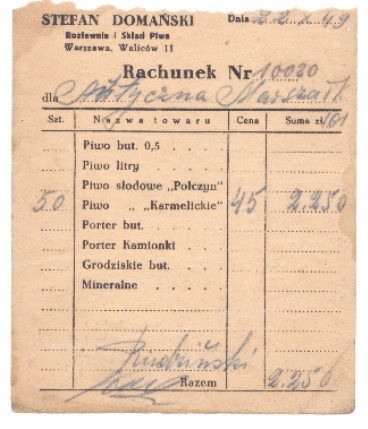 STEFAN DOMAŃSKI
Rozlewnia i Skład Piwa
Warszawa, Waliców 11
Dnia 22 X 49
Rachunek Nr 10030
dla
Szt. Nazwa towaru Cena Suma zł
Piwo but. 0,5 . . . .
Piwo litry . . . .
Piwo słodowe „Połczyn"
50 Piwo „ „Karmelickie" 45 2.250
Porter but. . . . .
Porter Kamionki . . .
Grodziskie but. . . .
Mineralne . . . .
Razem 2.250